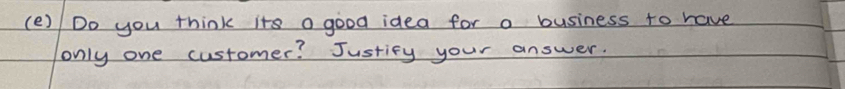 (e) Do you think its a good idea for a business to have
only one customer? Justify your answer.